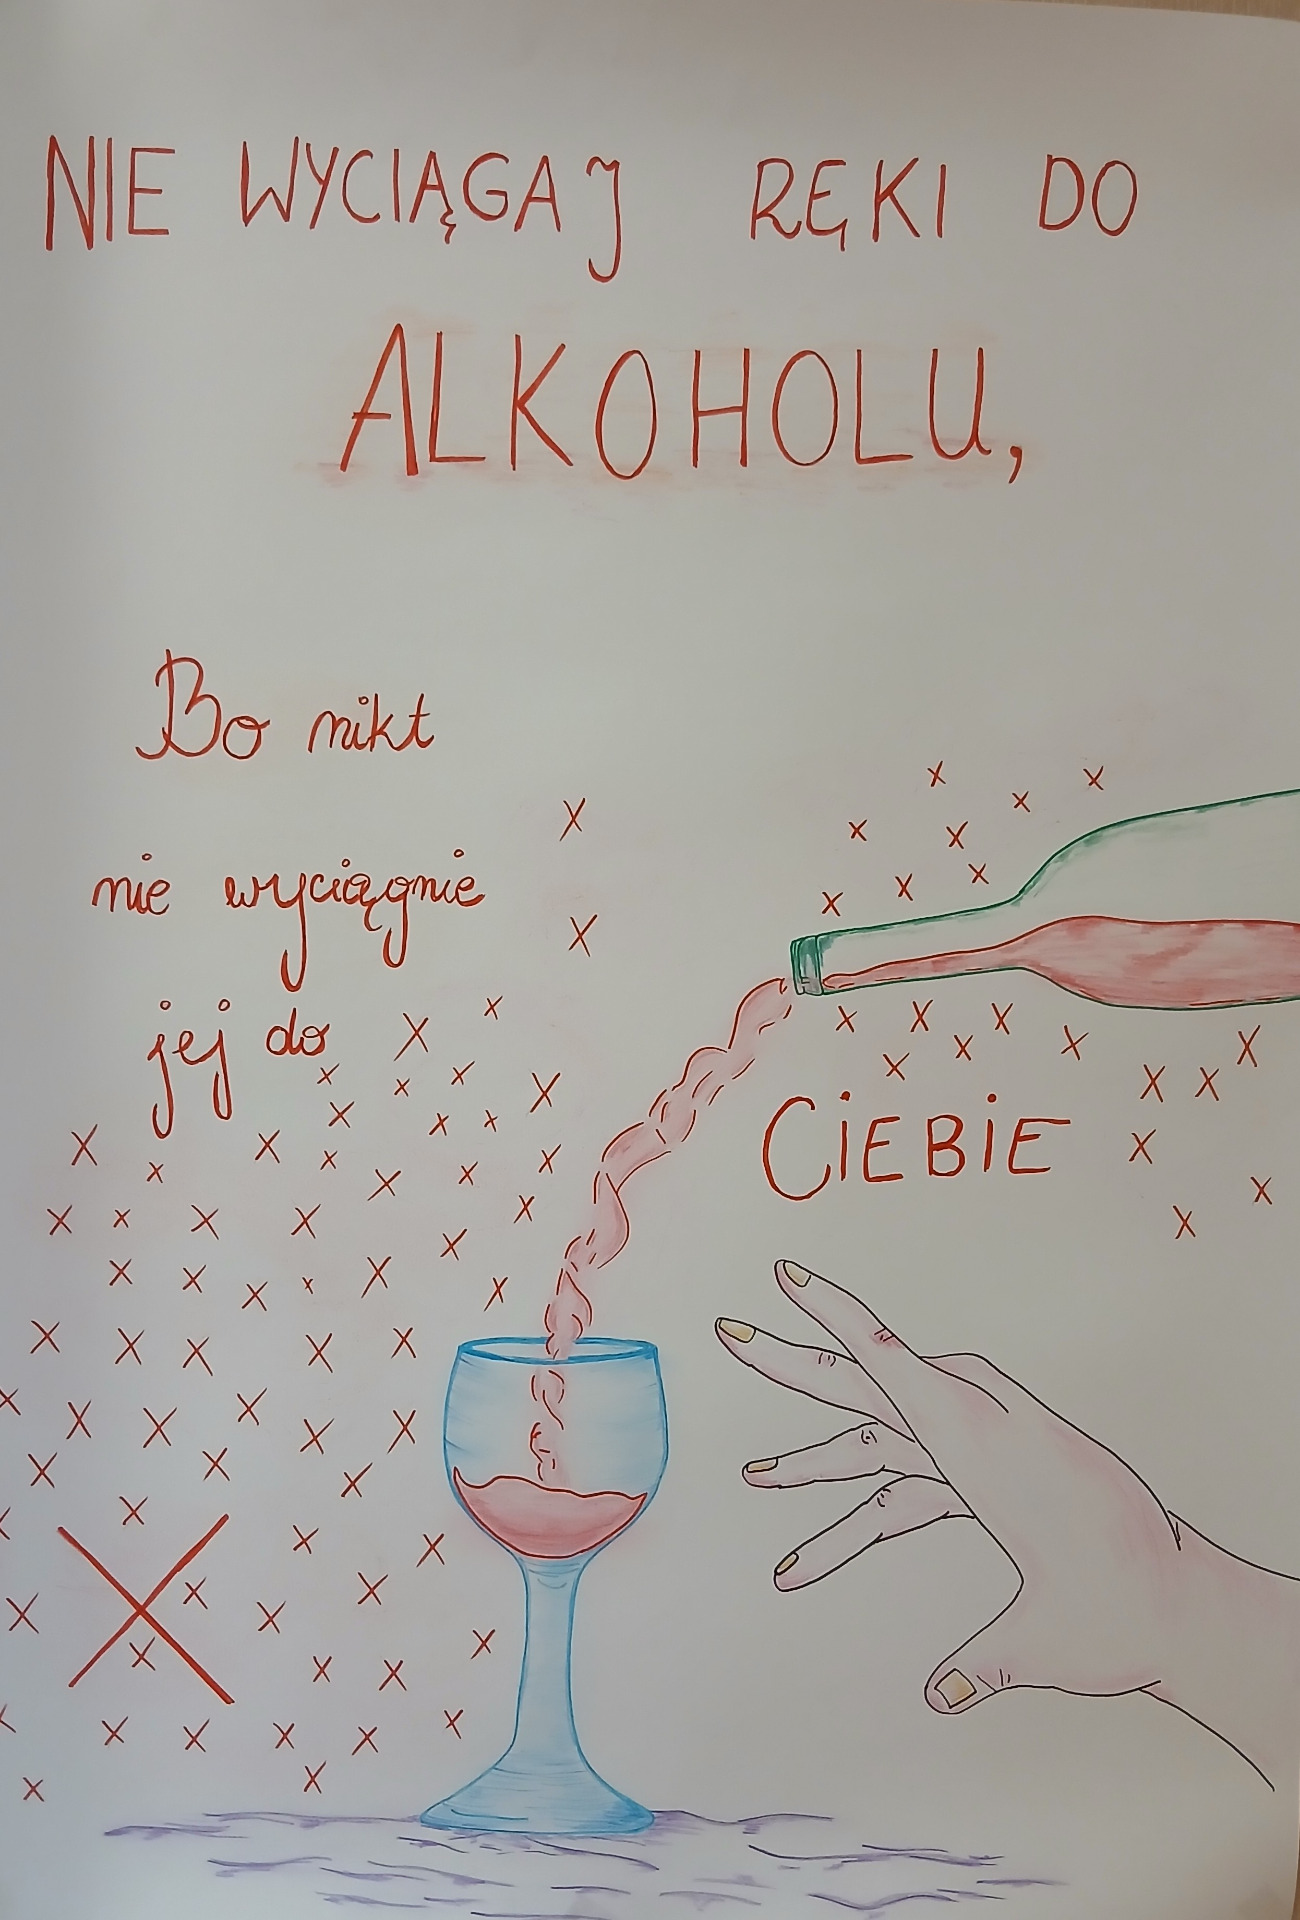 NIE WYCIĄGAJ RĘKI DO
ALKOHOLU,
Bo nikt
nie wyciągnie
jej do
CiEBiE